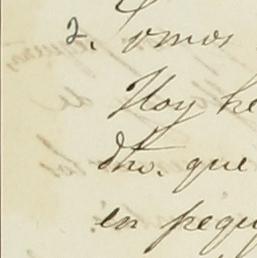 2. Somos
Hoy he
dho. que
en pequ